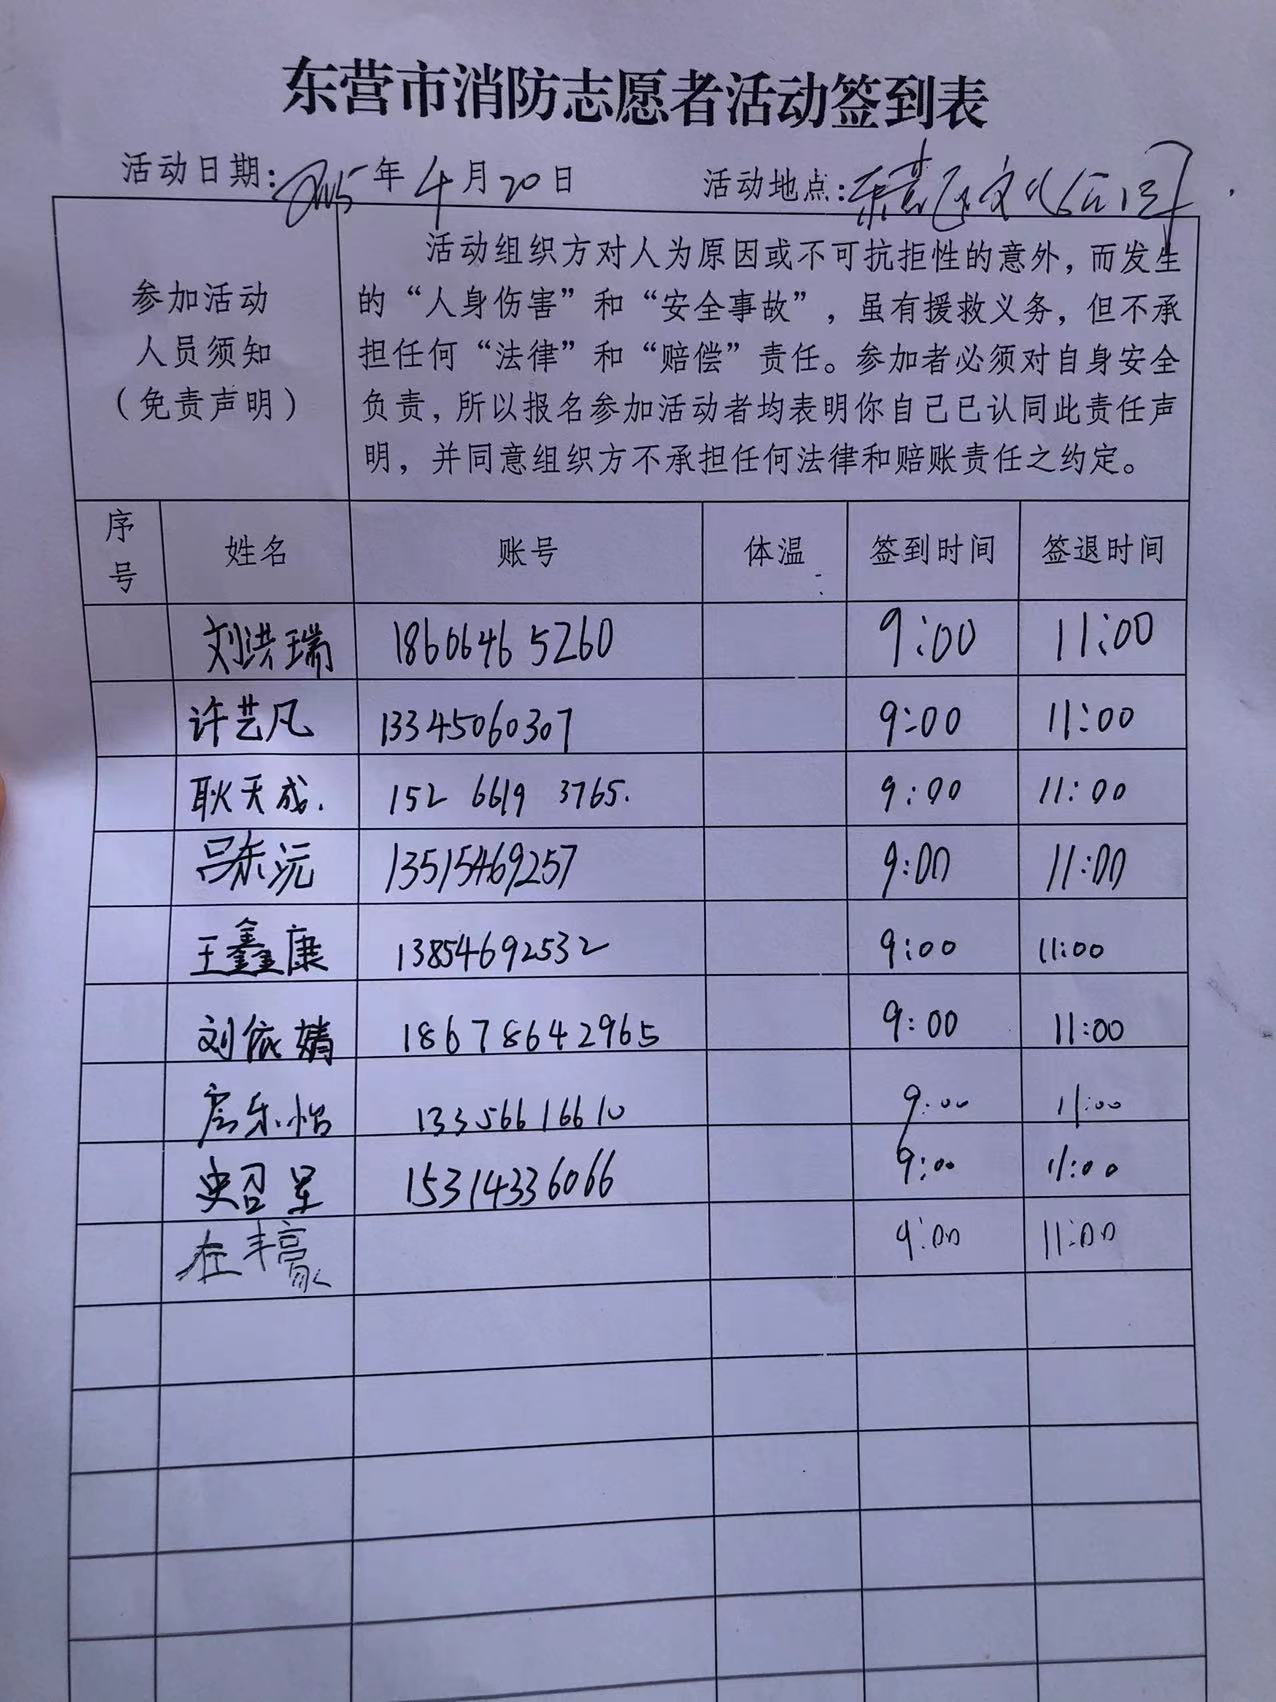 东营市消防志愿者活动签到表
活动日期: 2025年4月20日 活动地点:
参加活动
人员须知
(免责声明)
活动组织方对人为原因或不可抗拒性的意外，而发生
的“人身伤害”和“安全事故”，虽有援救义务，但不承
担任何“法律”和“赔偿”责任。参加者必须对自身安全
负责，所以报名参加活动者均表明你自己已认同此责任声
明，并同意组织方不承担任何法律和赔账责任之约定。
序号 姓名 账号 体温 签到时间 签退时间
刘洪瑞 18606465260 9:00 11:00
许艺凡 13345060307 9:00 11:00
耿天成. 152 6619 3765. 9:00 11:00
吕东沅 13515469257 9:00 11:00
王鑫康 13854692532 9:00 11:00
刘依婧 18678642965 9:00 11:00
房乐怡 13356616610 9:00 11:00
史召星 15314336066 9:00 11:00
左丰豪 9:00 11:00